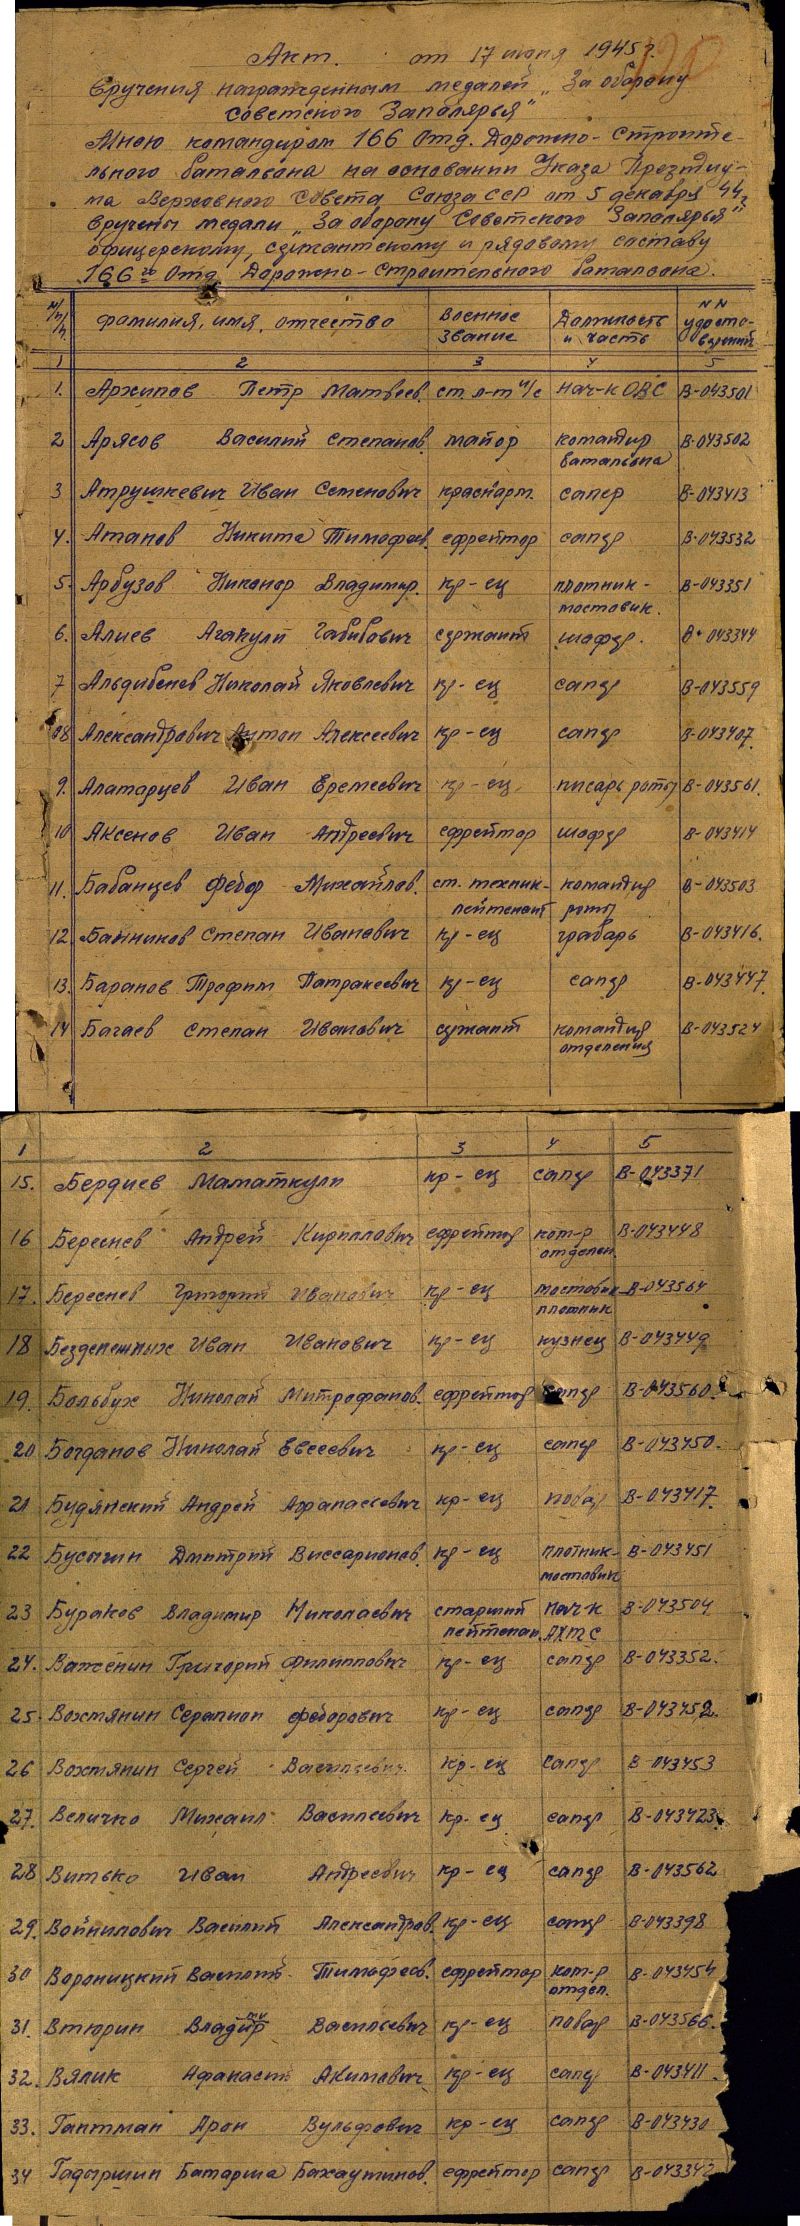 Акт. от 17 июня 1945 г.
Вручения награжденным медалей „За оборону
Советского Заполярья"
Мною командиром 166 Отд. Дорожно-Строите-
льного батальона на основании Указа Президиу-
ма Верховного Совета Союза ССР от 5 декабря 44 г.
вручены медали „За оборону Советского Заполярья"
офицерскому, сержантскому и рядовому составу
166го Отд. Дорожно-Строительного батальона.
№/п/п. фамилия, имя, отчество Военное звание Должность и часть NN удосто-верений
1 2 3 4 5
1. Архипов Петр Матвеев. ст. л-т и/с нач-к ОВС В-043501
2 Арясов Василий Степанов. майор командир батальона В-043502
3 Атрушкевич Иван Семенович красн.арм. сапер В-043413
4. Атанов Никита Тимофеев. ефрейтор сапер В-043532
5. Арбузов Никонор Владимир. кр-ец плотник-мостовик. В-043351
6. Алиев Агакули Габибович сержант шофер. В-043344
7 Альдибенев Николай Яковлевич кр-ец сапер В-043559
8 Александрович Антон Алексеевич кр-ец сапер В-043407.
9. Алатарцев Иван Еремеевич кр-ец писарь роты В-043561.
10 Аксенов Иван Андреевич ефрейтор шофер В-043414
11. Бабанцев Федор Михайлов. ст. техник-лейтенант командир роты В-043503
12. Банников Степан Иванович кр-ец грабарь В-043416.
13. Баранов Трофим Патракеевич кр-ец сапер В-043447.
14 Багаев Степан Иванович сержант командир отделения В-043524
1 2 3 4 5
15. Бердиев Маматкули кр-ец сапер В-043371
16 Береснев Андрей Кириллович ефрейтор ком-р отделен. В-043448
17. Береснев Григорий Иванович кр-ец мостовик-плотник В-043564
18 Безденежных Иван Иванович кр-ец кузнец В-043449
19. Больбух Николай Митрофанов. ефрейтор сапер В-043560.
20 Богданов Николай Евсеевич кр-ец сапер В-043450.
21 Будянский Андрей Афанасьевич кр-ец повар В-043417.
22 Бусыгин Дмитрий Виссарионов. кр-ец плотник-мостовик В-043451
23 Бураков Владимир Николаевич старший лейтенан. нач-к АХТС В-043504
24. Важенин Григорий Филиппович кр-ец сапер В-043352.
25. Вохтянин Серапион Федорович кр-ец сапер В-043452.
26 Вохтянин Сергей Васильевич. кр-ец сапер В-043453
27. Величко Михаил Васильевич кр-ец сапер В-043423.
28 Витько Иван Андреевич кр-ец сапер В-043562
29. Войнилович Василий Александров. кр-ец сапер В-043398
30 Вороницкий Василий Тимофеев. ефрейтор ком-р отдел. В-043454
31. Втюрин Владимир Васильевич кр-ец повар В-043566.
32. Вялик Афанасий Акимович кр-ец сапер В-043411.
33. Гантман Арон Вульфович кр-ец сапер В-043430
34 Гадыршин Батарша Бахаутинов. ефрейтор сапер В-043342